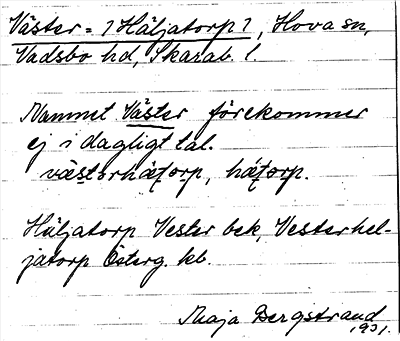 Väster=1 Häljatorp 1, Hova sn,
Vadsbo hd, Skarab. l.
Namnet Väster förekommer
ej i dagligt tal.
västərhäʃtorp, häʃtorp.
Häljatorp Vester bek, Vesterhel-
jatorp Österg. kb.
Maja Bergstrand
1931.